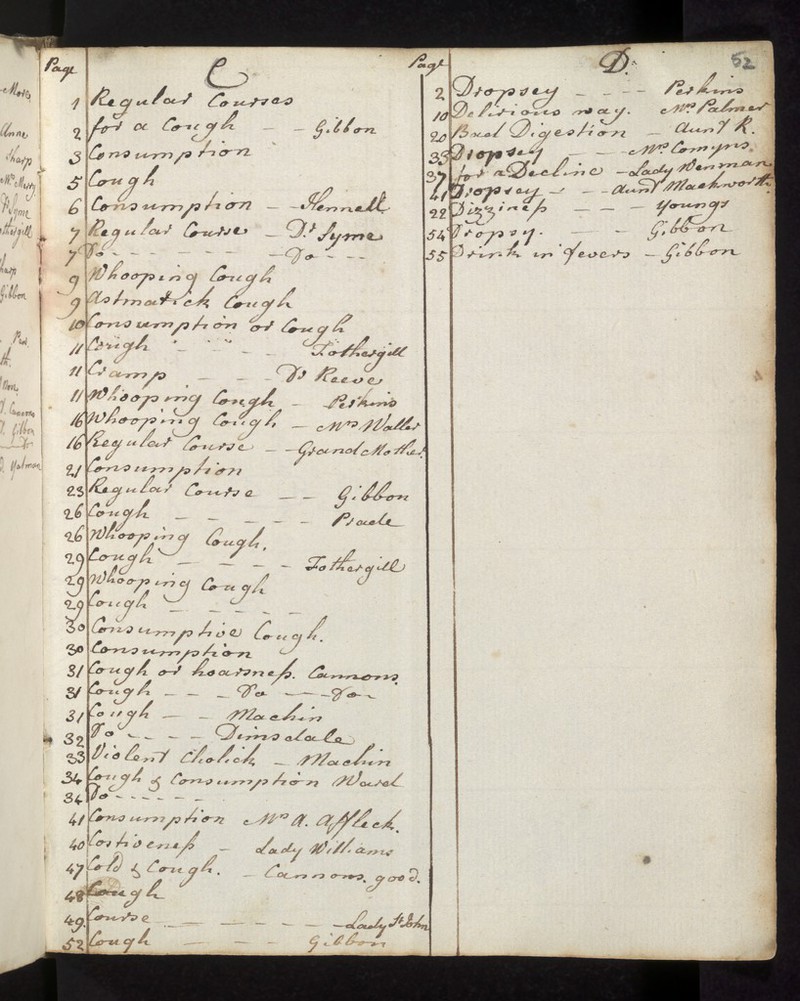 Page C
1 Regular Courses
2 for a Cough - - Gibbon
3 Consumption
5 Cough
6 Consumption - - Hennell
7 Regular Course - Dr Syme
7 Do - - - - - - Do - - -
9 Whooping Cough
9 Astmatick Cough
10 Consumption or Cough
11 Cough - - - - Fothergill
11 Cramp - - - Dr Reeve
11 Whooping Cough - Perkins
16 Whooping Cough - Mrs Waller
16 Regular Course - - Grand Mother.
21 Consumption
23 Regular Course - - Gibbon
26 Cough - - - - - Prade
26 Whooping Cough.
29 Cough - - - - Fothergill
29 Whooping Cough
29 Cough - - - - -
30 Consumptive Cough.
30 Consumption
31 Cough or hoarsness. Cannons.
31 Cough - - - Do - - Do -
31 Cough - - Machin
32 Do - - - - Dimsdale
33 Violent Cholick - Machin
34 Cough & Consumption Ward
34 Do - - - - - -
41 Consumption Mrs A. Affleck.
40 Costiveness - Lady Williams
47 Cold & Cough. - Cannons. good.
48 Cough
49. Course - - - - - - Lady St John
52 Cough - - - Gibbon
Page D. 52
2 Dropsey - - - - Perkins
10 Delirious way. Mrs Palmer
20 Bad Digestion - Aunt R.
33 Dropsey - - Mrs Comyns.
37 for a Decline - Lady Wenman
41 Dropsey - - - Aunt Mackworth.
22 Dizziness - - - Youngs
54 Dropsy. - - - Gibbon
55 Drink in fevers - Gibbon